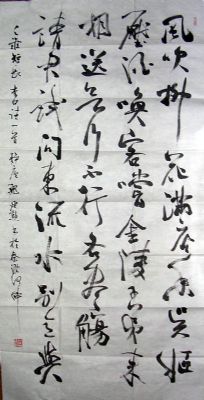 風吹柳花滿店香吳姬
壓酒喚客嘗金陵子弟來
相送欲行不行各盡觴
請君試問東流水別意與
之誰短長 李白詩一首 於秦淮河畔